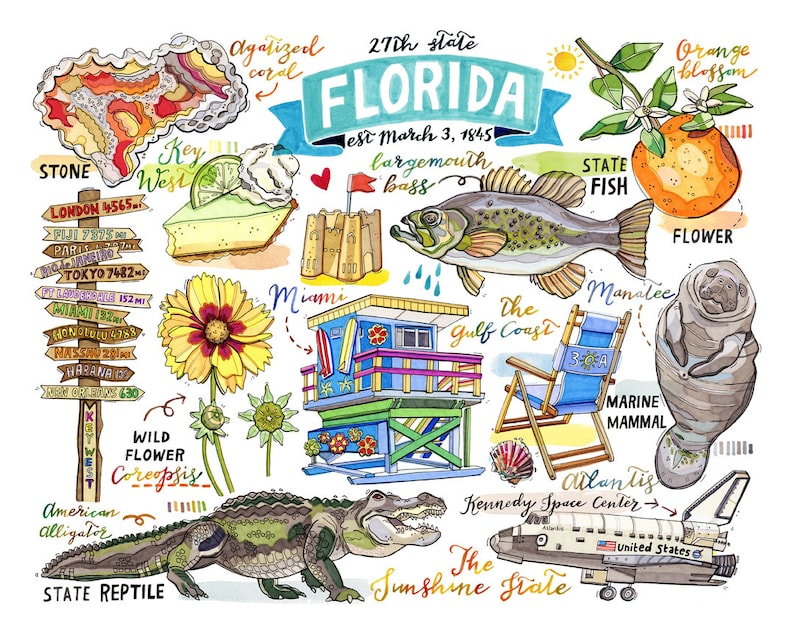 27th state
FLORIDA
est March 3, 1845
Agatized
coral
STONE
Key
West
largemouth
bass
STATE
FISH
Orange
blossom
FLOWER
LONDON 4565 MI
FIJI 7375 MI
PARIS
RIO de JANEIRO
TOKYO 7482 MI
FT LAUDERDALE 152 MI
MIAMI 132 MI
HONOLULU 4788
NASSAU 281 MI
HABANA
NEW ORLEANS 630
KEY WEST
WILD
FLOWER
Coreopsis
Miami
The
Gulf Coast
3-0A
Manatee
MARINE
MAMMAL
American
Alligator
STATE REPTILE
The
Sunshine State
Atlantis
Kennedy Space Center
Atlantis
United States